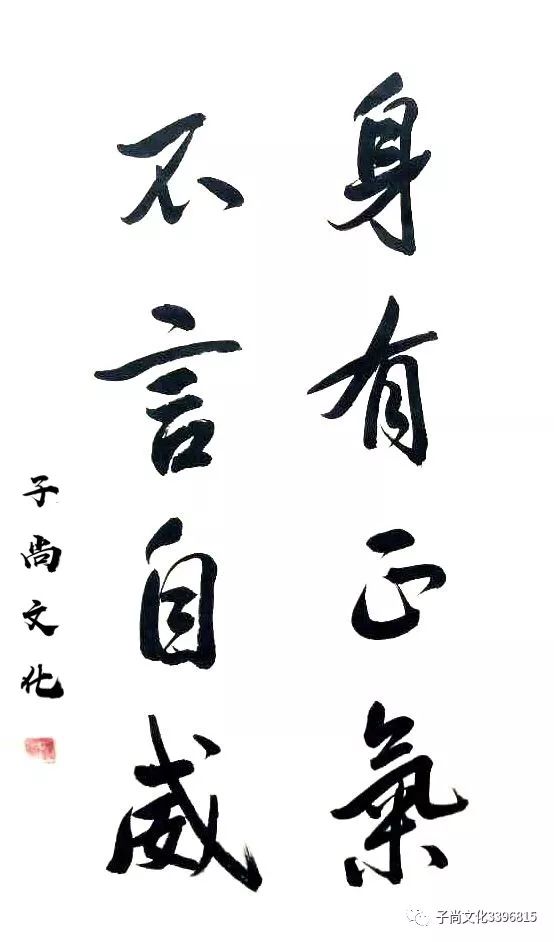 身有正氣
不言自威
子尚文化
子尚文化3396815